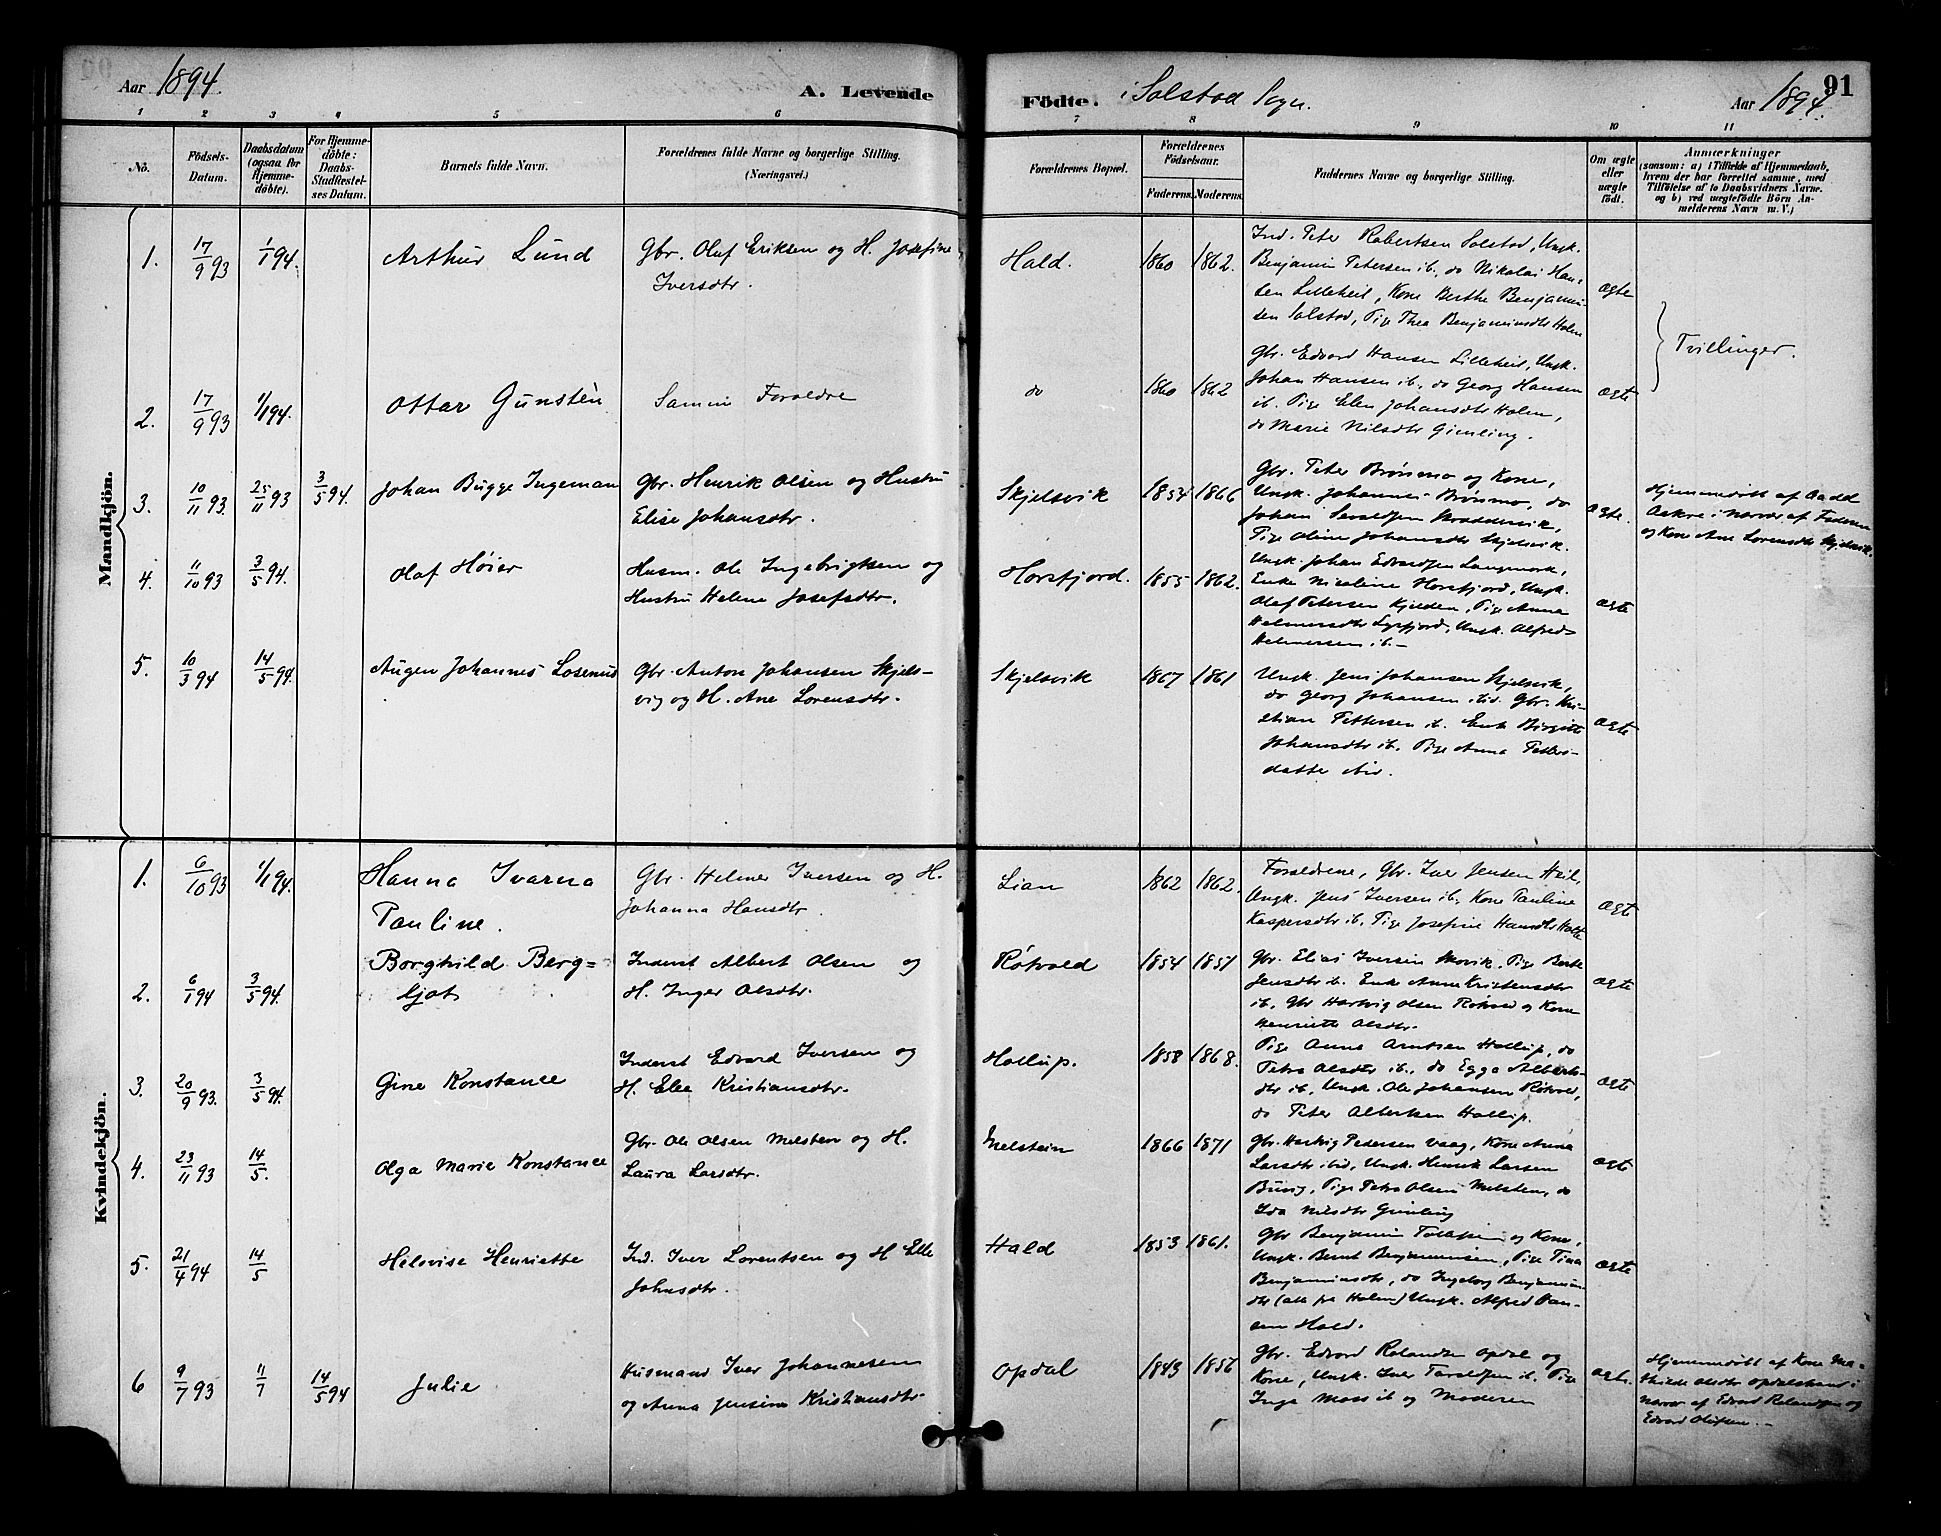 Aar 1894.
A. Levende
Födte. i Solstad Sogn.
Aar 1894.
91
1 2 3 4 5 6 7 8 9 10 11
No.
Födsels-Datum.
Daabsdatum (ogsaa for Hjemme-döbte).
For Hjemme-döbte: Daabs-Stadfæstel-ses Datum.
Barnets fulde Navn.
Forældrenes fulde Navne og borgerlige Stilling. (Næringsvei.)
Forældrenes Bopæl.
Forældrenes Födselsaar.
Faderens. Moderens.
Faddernes Navne og borgerlige Stilling.
Om ægte eller uægte födt.
Anmærkninger
(saasom: a) i Tilfælde af Hjemmedaab,
hvem der har forrettet samme, med
Tilföielse af to Daabsvidners Navne.
og b) ved uægtefödte Börn An-
melderens Navn m. V.)
Mandkjön.
1. 17/9 93 1/1 94. Arthur Lund
Gbr. Oluf Eriksen og H. Josefine
Iversdtr.
Hald. 1860 1862.
Ind. Peter Robertsen Solstad, Ungk.
Benjamin Petersen ib., do Nikolai Han-
sen Lilleheil, Kone Berthe Benjamin-
sen Solstad, Pige Thea Benjaminsdtr Holm
ægte
Tvillinger.
2. 17/9 93 1/1 94. Ottar Gunstèn
Samme Forældre
do 1860 1862
Gbr. Edvard Hansen Lilleheil, Ungk.
Johan Hansen ib., do Georg Hansen
ib. Pige Elen Johansdtr Holm,
do Marie Nilsdtr Gimling.
ægte
3. 10/11 93. 25/11 93 3/5 94. Johan Bugge Ingeman
Gbr. Henrik Olsen og Hustru
Elise Johansdtr.
Skjelsvik 1854 1866
Gbr. Peter Brönmo og Kone,
Ungk. Johannes Brönmo, do
Johan
Pige Oline Johansdtr Skjelsvik.
ægte.
Hjemmedöbt af
i Nærvær af Faderen
og Kone Ane Lorensdtr Skjelsvik.
4. 11/10 93 3/5 94. Olaf Höier
Husm. Ole Ingebrigtsen og
Hustru Helene Josefsdtr.
Horsfjord. 1855 1862.
Ungk. Johan Edvardsen Langmork,
Enke Nicoline Horsfjord, Ungk.
Olaf Petersen Kjelden, Pige Anna
Helmersdtr Lysfjord, Ungk. Alfred
Helmersen ib. —
ægte
5. 10/3 94 14/5 94. Augen Johannes Losenius
Gbr. Anton Johansen Skjels-
vig og H. Ane Lorensdtr.
Skjelsvik 1867 1861
Ungk. Jens Johansen Skjelsvik,
do Georg Johansen, ibid. Gbr. Kri-
stian Pettersen ib. Enke Birgitte
Johansdtr ib. Pige Anna Petters-
datter ibid.
ægte
Kvindekjön.
1. 6/10 93 1/1 94. Hanna Ivarna
Pauline.
Gbr. Helmer Iversen og H.
Johanna Hansdtr.
Lian 1862 1862.
Forældrene, Gbr. Iver Jensen Heil,
Ungk. Jens Iversen ib, Kone Pauline
Kaspersdtr ib, Pige Josefine Hansdtr
ægte
2. 6/1 94 3/5 94. Borghild Berg=
ljot
Inderst Albert Olsen og
H. Inger Olsdtr.
Rötvold 1854 1851
Gbr. Elias Iversen Skovik, Pige Berte
Jensdtr ib. Enke Anne Kristensdtr
ib, Gbr Hartvig Olsen Rötvold og Kone
Henriette Olsdtr.
ægte
3. 20/9 93. 3/5 94. Gine Konstance
Inderst Edvard Iversen og
H. Elee Kristiansdtr.
Hollup. 1858 1868.
Pige Anne Arntsen Hollup, do
Petra Olsdtr ib., do Egga Alberts-
dtr ib, Ungk. Ole Johansen Rötvold,
do Peter Albertsen Hollup.
ægte
4. 23/11 93 14/5. Olga Marie Konstance
Gbr. Ole Olsen Melsten og H.
Laura Larsdtr.
Melstein 1866 1871
Gbr. Hartvig Petersen Vaag, Kone Anna
Larsdtr ibid, Ungk. Henrik Larsen
Pige Petra Olsen Melsten, do
Ida Nilsdtr Gimling
ægte
5. 21/4 94 14/5 Helovise Henriette
Ind. Iver Lorentsen og H Elle
Johnsdtr.
Hald 1853 1861.
Gbr Benjamin og Kone,
Ungk. Bernt Benjaminsen, Pige Tina
Benjaminsdtr, do Ingeborg Benjamins-
dtr (alle fra Holm) Ungk. Alfred Dan-
sen Hald.
ægte
6 9/7 93 11/7 14/5 94 Julie
Husmand Iver Johannesen
og Anna Jensine Kristiansdtr
Opdal 1843 1856
Gbr. Edvard Rolandsen Opdal og
Kone, Ungk. Iver ib. Pige
Inga Moss ib og Moderen
ægte.
Hjemmedöbt af Kone Ma-
thilde Olsdtr Opdalstrand i
Nærvær af Edvard Rolandsen og
Edvard Olufsen. —